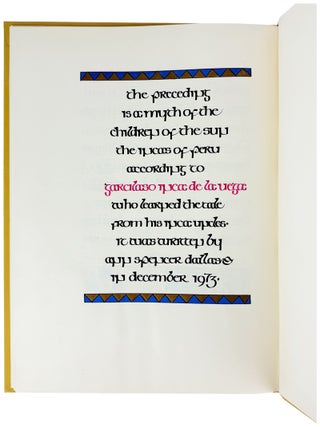 the preceding
is a myth of the
children of the sun
the incas of peru
according to
garcilaso inca de la vega:
who learned the tale
from his inca uncles.
it was written by
ann spencer dallas &
in december 1973.